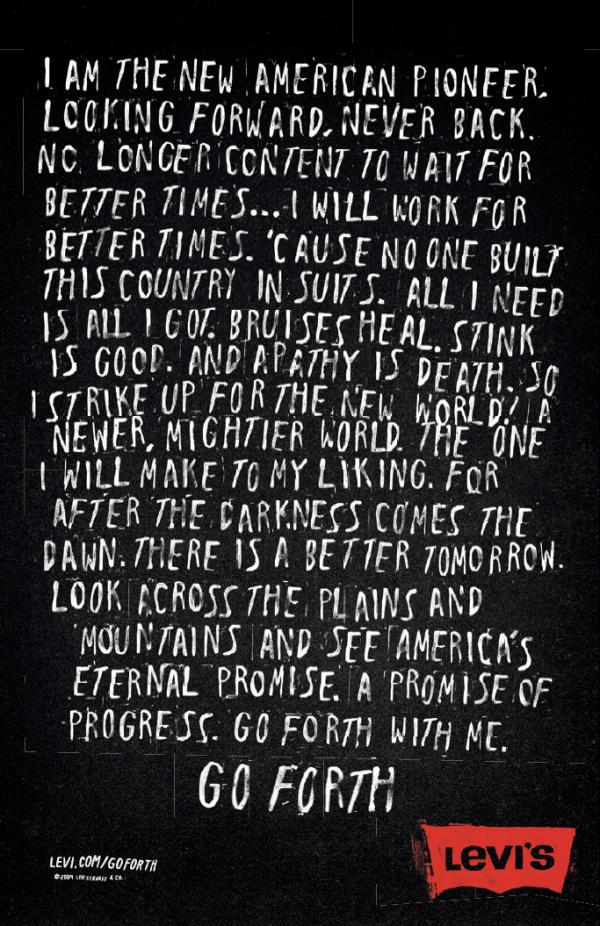 I AM THE NEW AMERICAN PIONEER,
LOOKING FORWARD, NEVER BACK.
NO LONGER CONTENT TO WAIT FOR
BETTER TIMES... I WILL WORK FOR
BETTER TIMES. 'CAUSE NO ONE BUILT
THIS COUNTRY IN SUITS. ALL I NEED
IS ALL I GOT. BRUISES HEAL. STINK
IS GOOD. AND APATHY IS DEATH. SO
I STRIKE UP FOR THE NEW WORLD! A
NEWER, MIGHTIER WORLD. THE ONE
I WILL MAKE TO MY LIKING. FOR
AFTER THE DARKNESS COMES THE
DAWN. THERE IS A BETTER TOMORROW.
LOOK ACROSS THE PLAINS AND
MOUNTAINS AND SEE AMERICA'S
ETERNAL PROMISE. A PROMISE OF
PROGRESS. GO FORTH WITH ME.
GO FORTH
LEVI'S
LEVI.COM/GOFORTH
©2009 LEVI STRAUSS & CO.